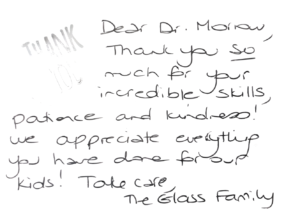 THANK
YOU
Dear Dr. Morrow,
Thank you so
much for your
incredible skills,
patience and kindness!
we appreciate everything
you have done for our
kids! Take care,
The Glass Family